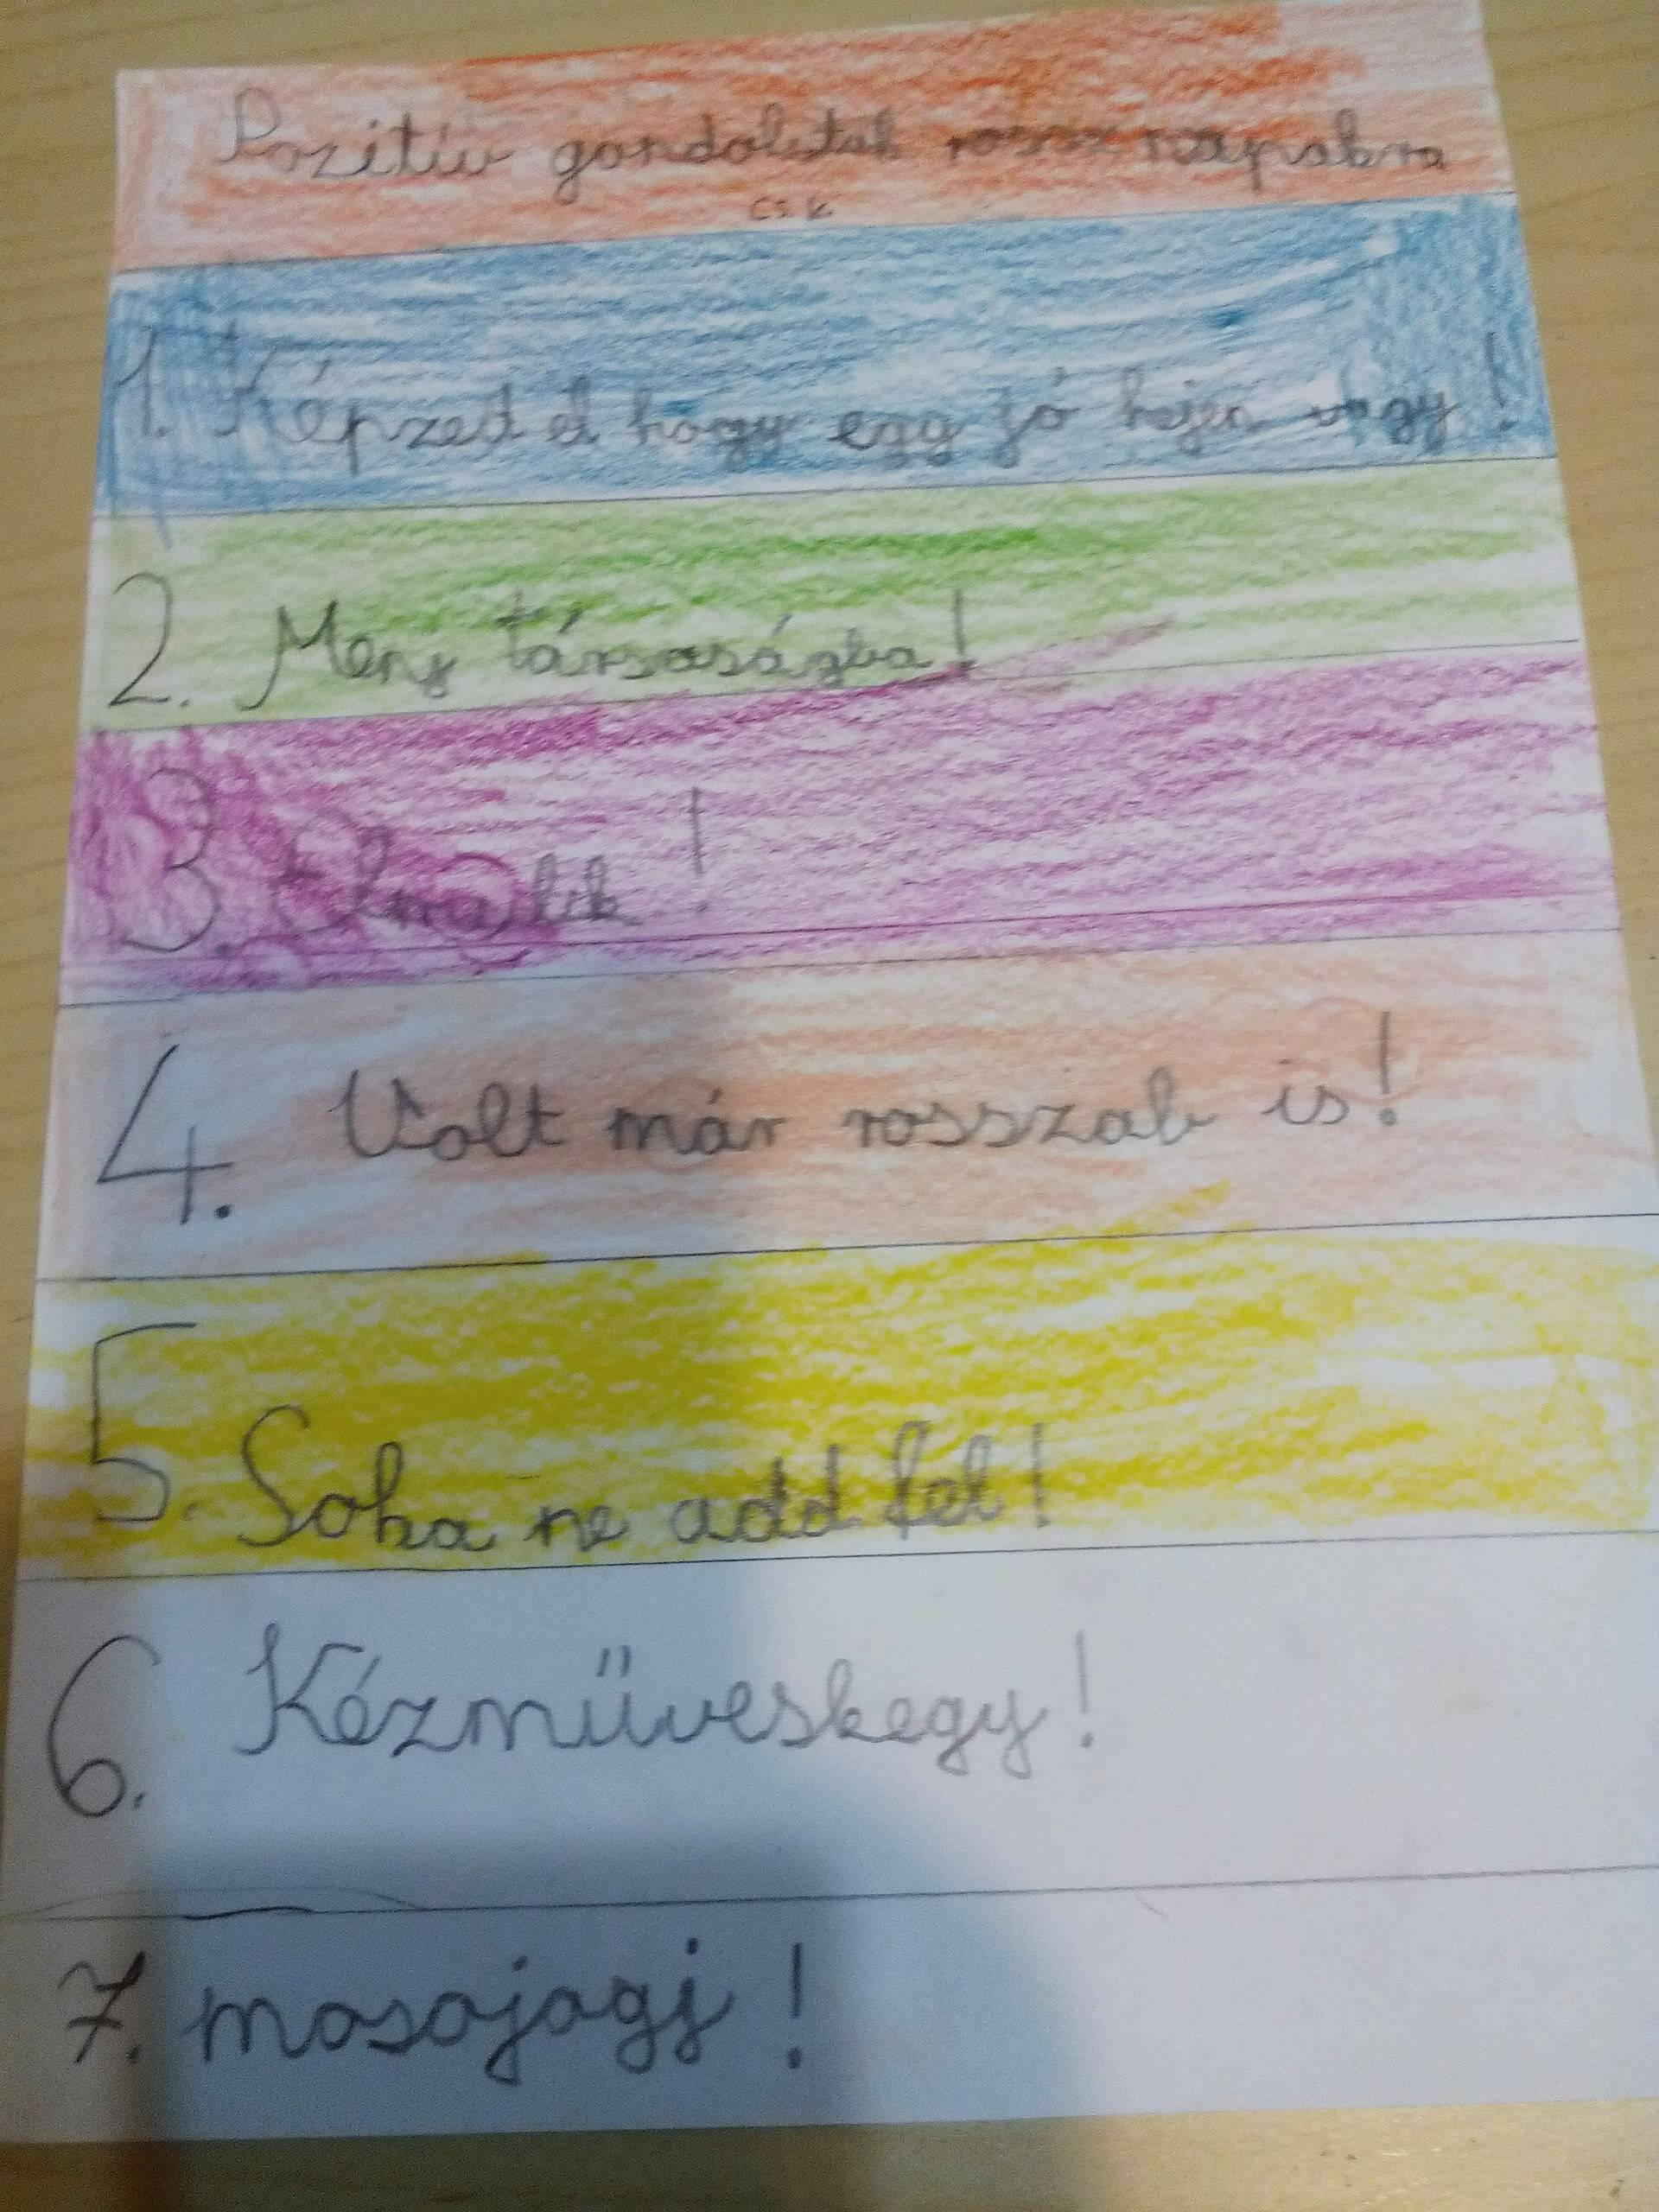 Pozitív gondolatak rossz napakra
CS. K.
1. Képzed el hogy egy jó hejen vagy!
2. Menj társaságba!
3. Elmulik!
4. Volt már rosszab is!
5. Soha ne add fel!
6. Kézműveskegy!
7. mosojogj!